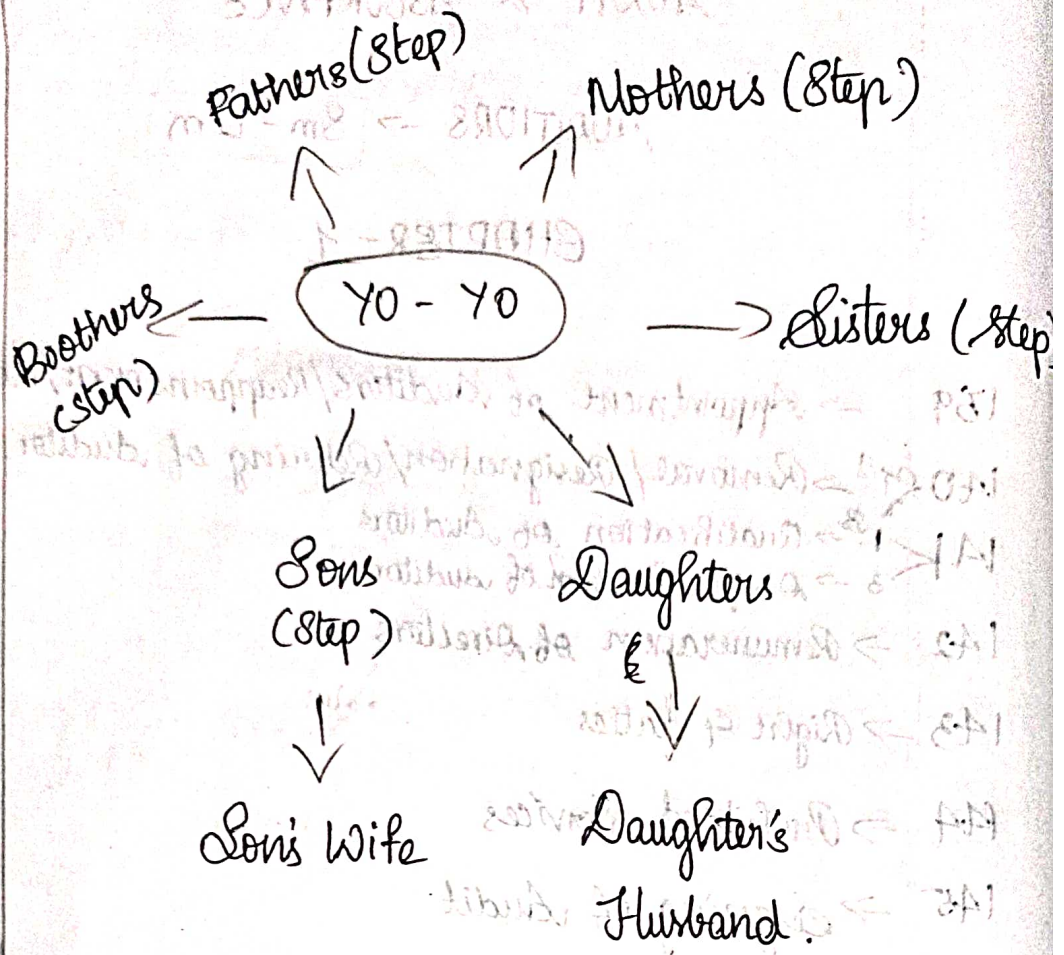 Fathers (Step)
Mothers (Step)
YO - YO
Broothers
(step)
Sisters (Step)
Sons
(Step)
Daughters
Son's Wife
Daughter's
Husband.